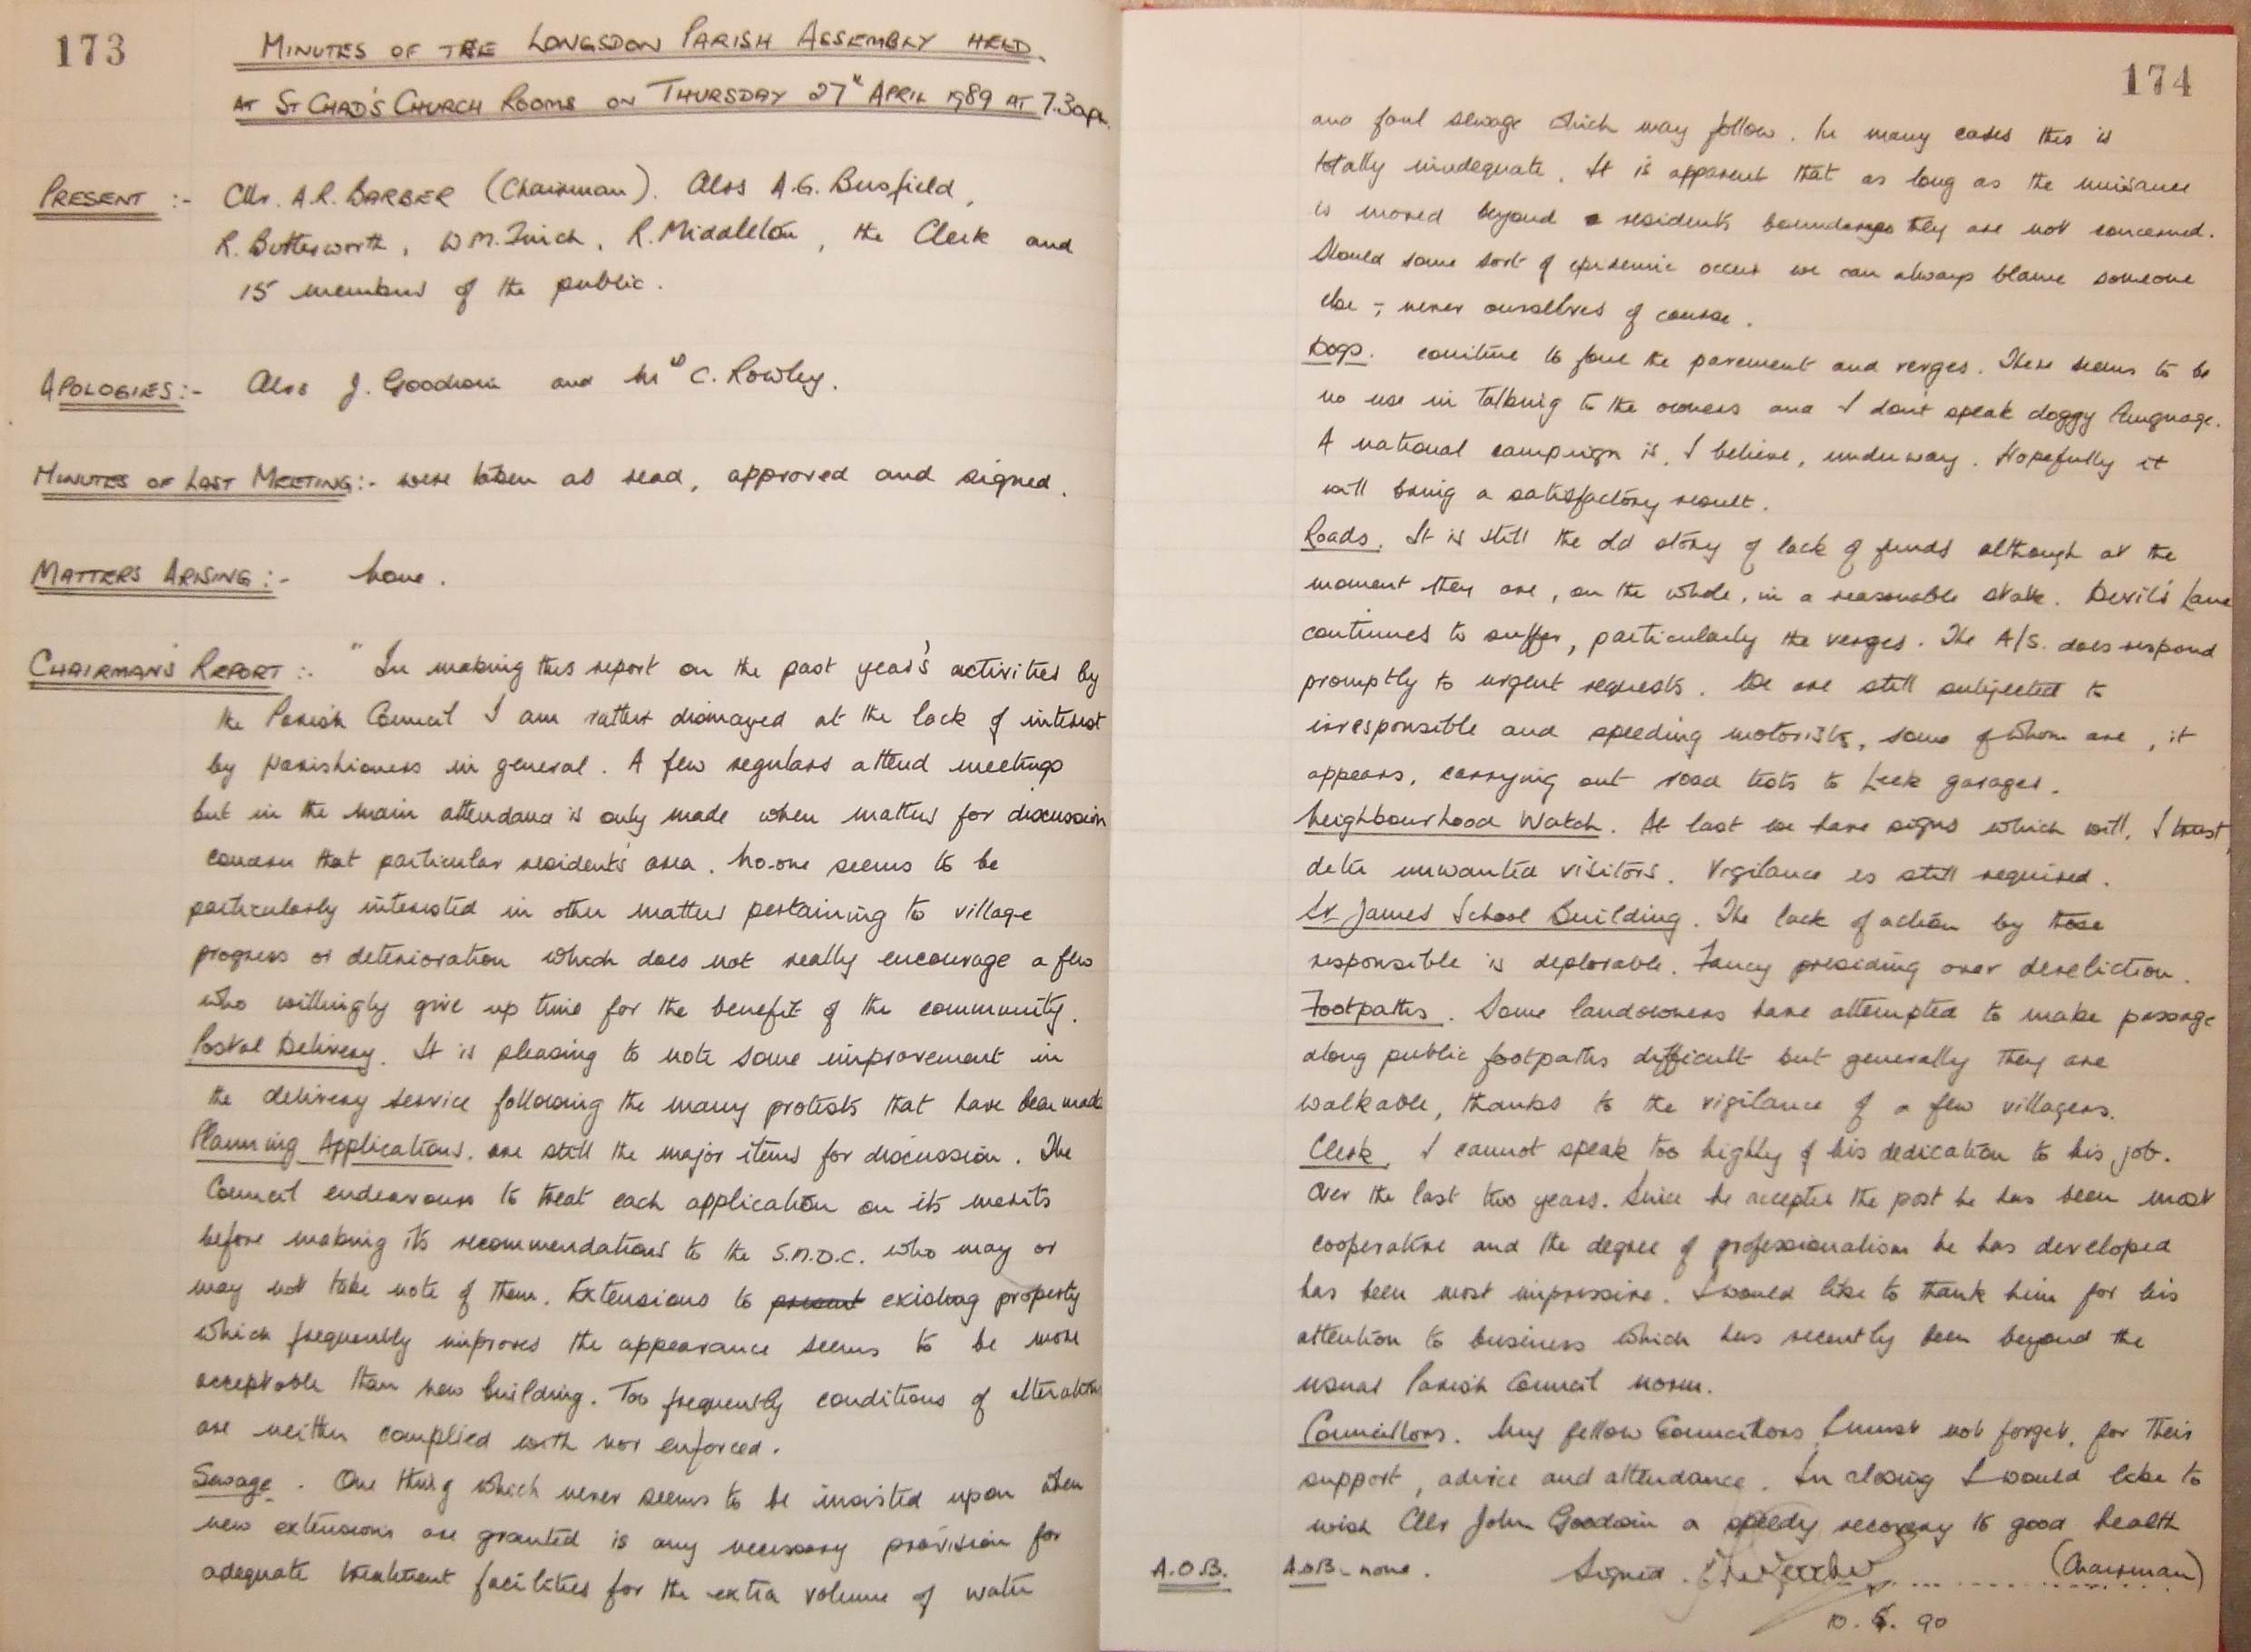 173
MINUTES OF THE LONGSDON PARISH ASSEMBLY HELD
AT ST CHAD'S CHURCH ROOMS ON THURSDAY 27th APRIL 1989 AT 7.30pm.
PRESENT :- Cllr. A.R. BARBER (Chairman). Clrs A.G. Busfield,
R. Butterworth, W.M. Finch, R. Middleton, the Clerk and
15 members of the public.
APOLOGIES:- Clrs J. Goodwin and Mrs C. Rowley.
MINUTES OF LAST MEETING:- were taken as read, approved and signed.
MATTERS ARISING:- None.
CHAIRMAN'S REPORT :- "In making this report on the past year's activities by
the Parish Council I am rather dismayed at the lack of interest
by parishioners in general. A few regulars attend meetings
but in the main attendance is only made when matters for discussion
concern that particular residents' area. No-one seems to be
particularly interested in other matters pertaining to village
progress or deterioration which does not really encourage a few
who willingly give up time for the benefit of the community.
Postal Delivery. It is pleasing to note some improvement in
the delivery service following the many protests that have been made
Planning Applications. are still the major items for discussion. The
Council endeavours to treat each application on its merits
before making its recommendations to the S.M.D.C. who may or
may not take note of them. Extensions to present existing property
which frequently improves the appearance seems to be more
acceptable than new building. Too frequently conditions of alteration
are neither complied with nor enforced.
Sewage. One thing which never seems to be insisted upon when
new extensions are granted is any necessary provision for
adequate treatment facilities for the extra volume of water
174
and foul sewage which may follow. In many cases this is
totally inadequate. It is apparent that as long as the nuisance
is moved beyond a residents boundaries they are not concerned.
Should some sort of epidemic occur we can always blame someone
else; never ourselves of course.
Dogs. continue to foul the pavement and verges. There seems to be
no use in talking to the owners and I don't speak doggy language.
A national campaign is, I believe, underway. Hopefully it
will bring a satisfactory result.
Roads. It is still the old story of lack of funds although at the
moment they are, on the whole, in a reasonable state. Devil's Lane
continues to suffer, particularly the verges. The A/S. does respond
promptly to urgent requests. We are still subjected to
irresponsible and speeding motorists, some of whom are, it
appears, carrying out road tests to Leek garages.
Neighbourhood Watch. At last we have signs which will, I trust,
deter unwanted visitors. Vigilance is still required.
St James School Building. The lack of action by those
responsible is deplorable. Fancy presiding over dereliction.
Footpaths. Some landowners have attempted to make passage
along public footpaths difficult but generally they are
walkable, thanks to the vigilance of a few villagers.
Clerk. I cannot speak too highly of his dedication to his job.
Over the last two years. Since he accepted the post he has been most
cooperative and the degree of professionalism he has developed
has been most impressive. I would like to thank him for his
attention to business which has recently been beyond the
usual Parish Council norm.
Councillors. My fellow Councillors I must not forget, for their
support, advice and attendance. In closing I would like to
wish Cllr John Goodwin a speedy recovery to good health
A.O.B. A.O.B- none. Signed (Chairman)